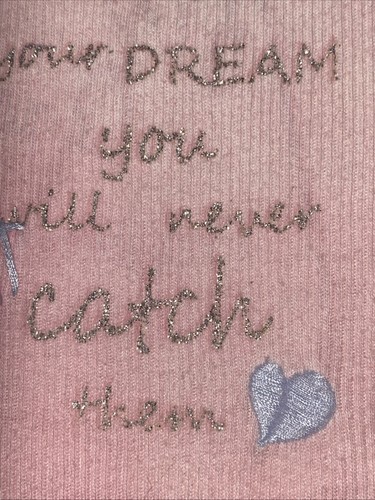 your DREAM
you
will never
catch
them